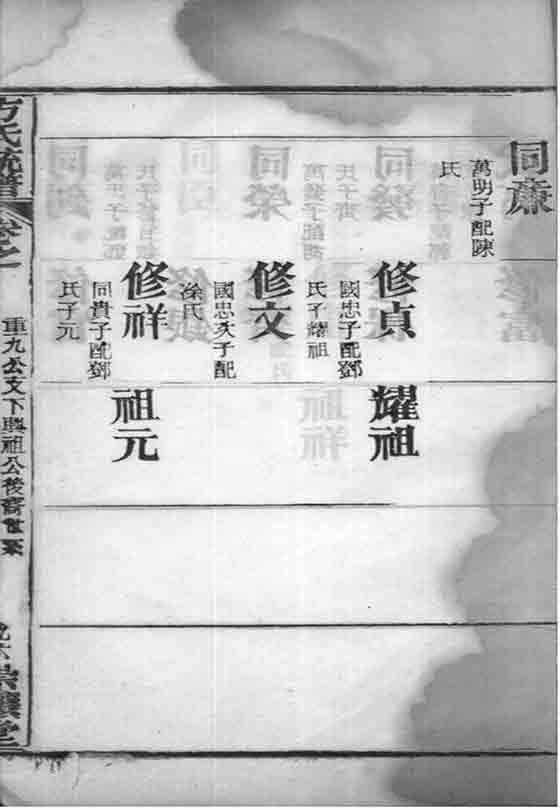 同廉
萬明子配陳
氏
修貞
國忠子配鄧
氏子耀祖
耀祖
修文
國忠次子配
涂氏
修祥
同貴子配鄧
氏子元
祖元
方氏統譜
卷之一
重九公支下興祖公後裔世系